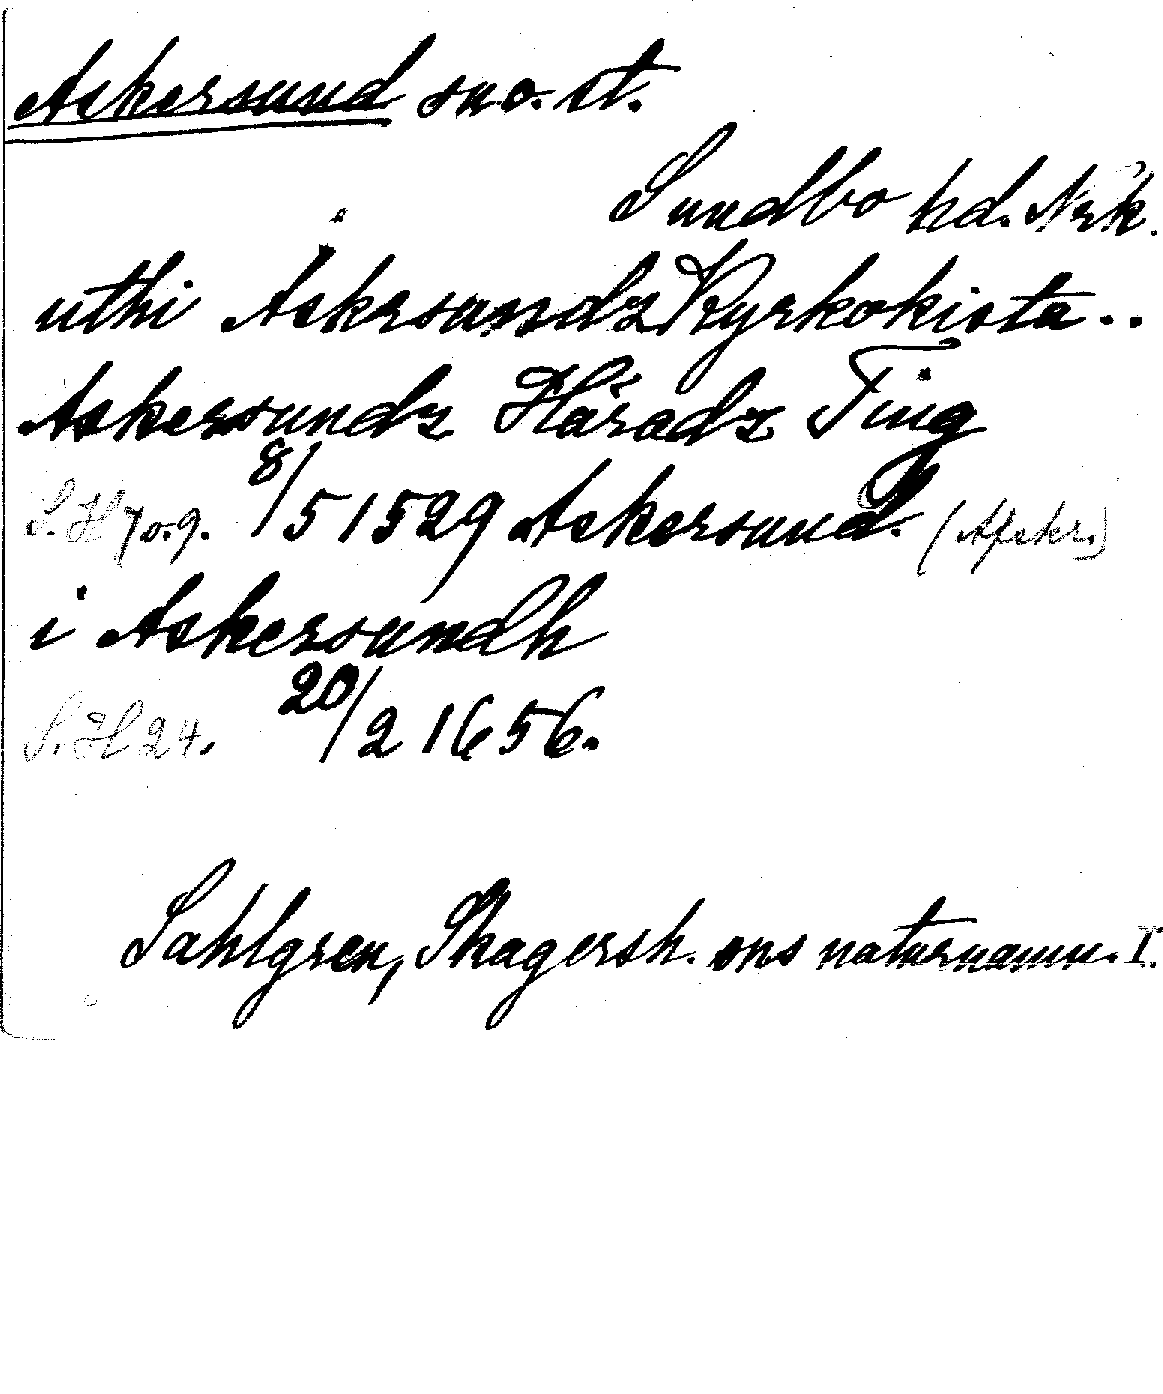 Askersund sno. st.
Sundbo hd. Nrk.
uthi Askrsundz Kyrkokista..
Askersundz Häradz Ting
S. H 7 o. 9. 8/5 1529 Askersund. (Afskr.)
i Askersundh
S. H 24. 20/2 1656.
Sahlgren, Skagersh. ons naturnamn. I.